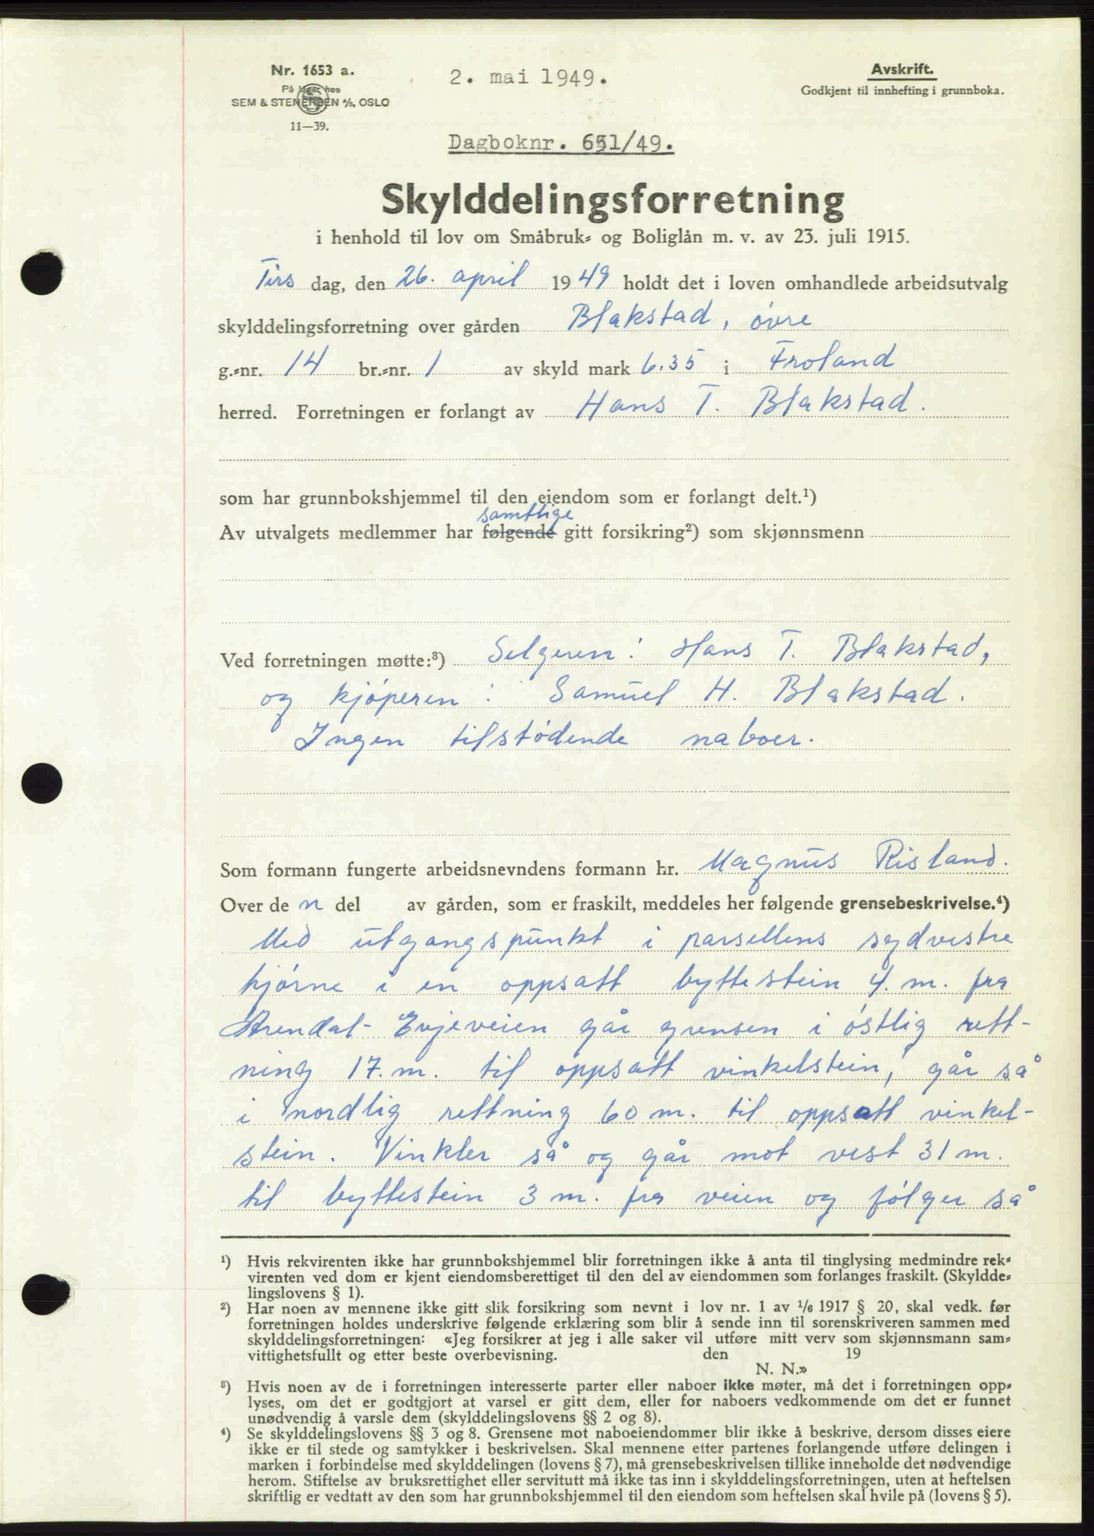 Nr. 1653 a.
På lager hos
SEM & STENERSEN A/S, OSLO
11—39.
2. mai 1949.
Avskrift.
Godkjent til innhefting i grunnboka.
Dagboknr. 651/49.
Skylddelingsforretning
i henhold til lov om Småbruk- og Boliglån m. v. av 23. juli 1915.
Tirs dag, den 26. april 1949 holdt det i loven omhandlede arbeidsutvalg
skylddelingsforretning over gården Blakstad, øvre
g.-nr. 14 br.-nr. 1 av skyld mark 6.35 i Froland
herred. Forretningen er forlangt av Hans T. Blakstad.
som har grunnbokshjemmel til den eiendom som er forlangt delt.¹)
samtlige
Av utvalgets medlemmer har følgende gitt forsikring²) som skjønnsmenn
Ved forretningen møtte:³) Selgeren: Hans T. Blakstad,
og kjøperen: Samuel H. Blakstad.
Ingen tilstødende naboer.
Som formann fungerte arbeidsnevndens formann hr. Magnus Risland.
Over de n del av gården, som er fraskilt, meddeles her følgende grensebeskrivelse.⁴)
Med utgangspunkt i parsellens sydvestre
hjørne i en oppsatt byttestein 4. m. fra
Arendal-Evjeveien går grensen i østlig rett-
ning 17. m. til oppsatt vinkelstein, går så
i nordlig rettning 60 m. til oppsatt vinkel-
stein. Vinkler så og går mot vest 31 m.
til byttestein 3 m. fra veien og følger så
¹) Hvis rekvirenten ikke har grunnbokshjemmel blir forretningen ikke å anta til tinglysing medmindre rek-
virenten ved dom er kjent eiendomsberettiget til den del av eiendommen som forlanges fraskilt. (Skyldde-
lingslovens § 1).
²) Har noen av mennene ikke gitt slik forsikring som nevnt i lov nr. 1 av 1/6 1917 § 20, skal vedk. før
forretningen holdes underskrive følgende erklæring som blir å sende inn til sorenskriveren sammen med
skylddelingsforretningen: «Jeg forsikrer at jeg i alle saker vil utføre mitt verv som skjønnsmann sam-
vittighetsfullt og etter beste overbevisning. den 19
N. N.»
³) Hvis noen av de i forretningen interesserte parter eller naboer ikke møter, må det i forretningen opp-
lyses, om det er godtgjort at varsel er gitt dem, eller for naboers vedkommende om det er funnet
unødvendig å varsle dem (skylddelingslovens §§ 2 og 8).
⁴) Se skylddelingslovens §§ 3 og 8. Grensene mot naboeiendommer blir ikke å beskrive, dersom disses eiere
ikke er til stede og samtykker i beskrivelsen. Skal mennene etter partenes forlangende utføre delingen i
marken i forbindelse med skylddelingen (lovens § 7), må grensebeskrivelsen tillike inneholde det nødvendige
herom. Stiftelse av bruksrettighet eller servitutt må ikke tas inn i skylddelingsforretningen, uten at heftelsen
skriftlig er vedtatt av den som har grunnbokshjemmel til den eiendom som heftelsen skal hvile på (lovens § 5).